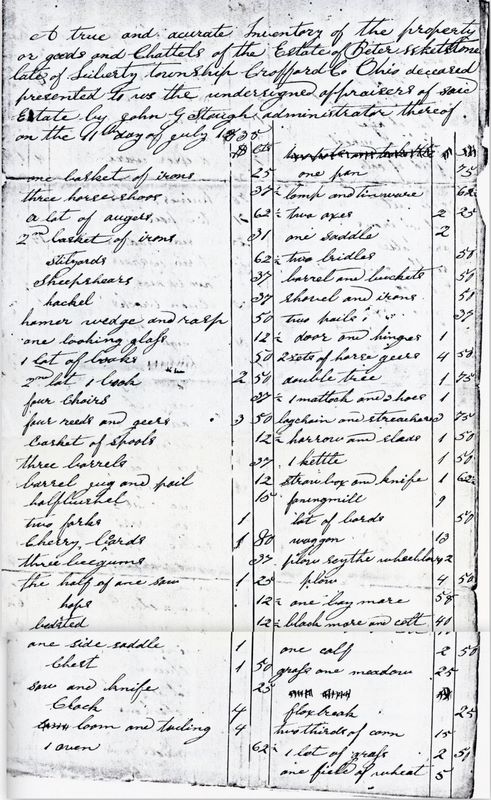 A true and acurate Inventory of the property
or goods and Chattels of the Estate of Peter
late of Liberty township Crofford Co Ohio deceased
presented to us the undersigned apraisers of said
Estate by John G Stough administrator thereof
on the 11th day of july 1835
$ cts
one basket of irons 25
three horse shoos 37½
a lot of augers 62½
2nd basket of irons 31
stilyards 62½
Sheepshears 37
hackel 37
hamer wedge and rasp 50
one looking glass 12½
1 lot of books 50
2nd lot 1 book 2 50
four Chairs 37½
four reeds and geers 3 50
basket of spools 12½
three barrels 37
barrel jug and pail 12
halfbushel 10
two forks 1
Cherry Bards 1 80
three beegums 37
the half of one saw 1 25
hops 12½
bedsted 12½
one side saddle 1
Chest 1 50
saw and knife 25
Clock 4
loom and tailing 4
1 oven 62½
one pan 75
lamp and tinware 62
two axes 2 25
one saddle 2
two bridles 50
barrel and buckets 50
shovel and irons 50
two pails 37
door and hinges 1
2 sets of horse geers 4 50
double tree 1 75
1 mattock and shoes 1
logchain and streachers 3 75
harrow and clads 1 50
1 kettle 1 50
strawbox and knife 1 62½
faningmill 9
lot of bords 50
waggon 13
plow scythe wheelbarow 2
plow 4 50
one bay mare 58
black mare and colt 40
one calf 2 50
grass one meadow 25
flaxbreak 25
two thirds of corn 15
1 lot of grass 2 50
one field of wheat 5